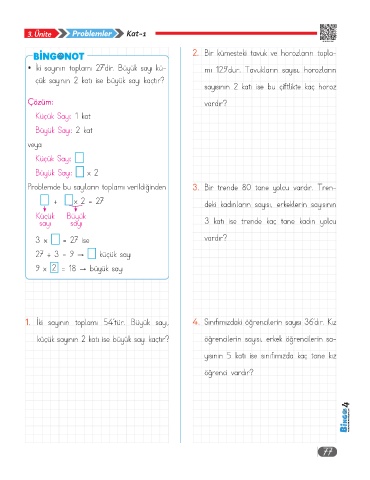 3. Ünite Problemler Kat-1
BİNGONOT
• İki sayının toplamı 27'dir. Büyük sayı kü-
çük sayının 2 katı ise büyük sayı kaçtır?
Çözüm:
Küçük Sayı: 1 kat
Büyük Sayı: 2 kat
veya
Küçük Sayı:
Büyük Sayı: x 2
Problemde bu sayıların toplamı verildiğinden.
+ x 2 = 27
Küçük Büyük
sayı sayı
3 x = 27 ise
27 ÷ 3 = 9 → küçük sayı
9 x 2 = 18 → büyük sayı
1. İki sayının toplamı 54'tür. Büyük sayı,
küçük sayının 2 katı ise büyük sayı kaçtır?
2. Bir kümesteki tavuk ve horozların topla-
mı 129'dur. Tavukların sayısı, horozların
sayısının 2 katı ise bu çiftlikte kaç horoz
vardır?
3. Bir trende 80 tane yolcu vardır. Tren-
deki kadınların sayısı, erkeklerin sayısının
3 katı ise trende kaç tane kadın yolcu
vardır?
4. Sınıfımızdaki öğrencilerin sayısı 36'dır. Kız
öğrencilerin sayısı, erkek öğrencilerin sa-
yısının 5 katı ise sınıfımızda kaç tane kız
öğrenci vardır?
BİNGO 4
77